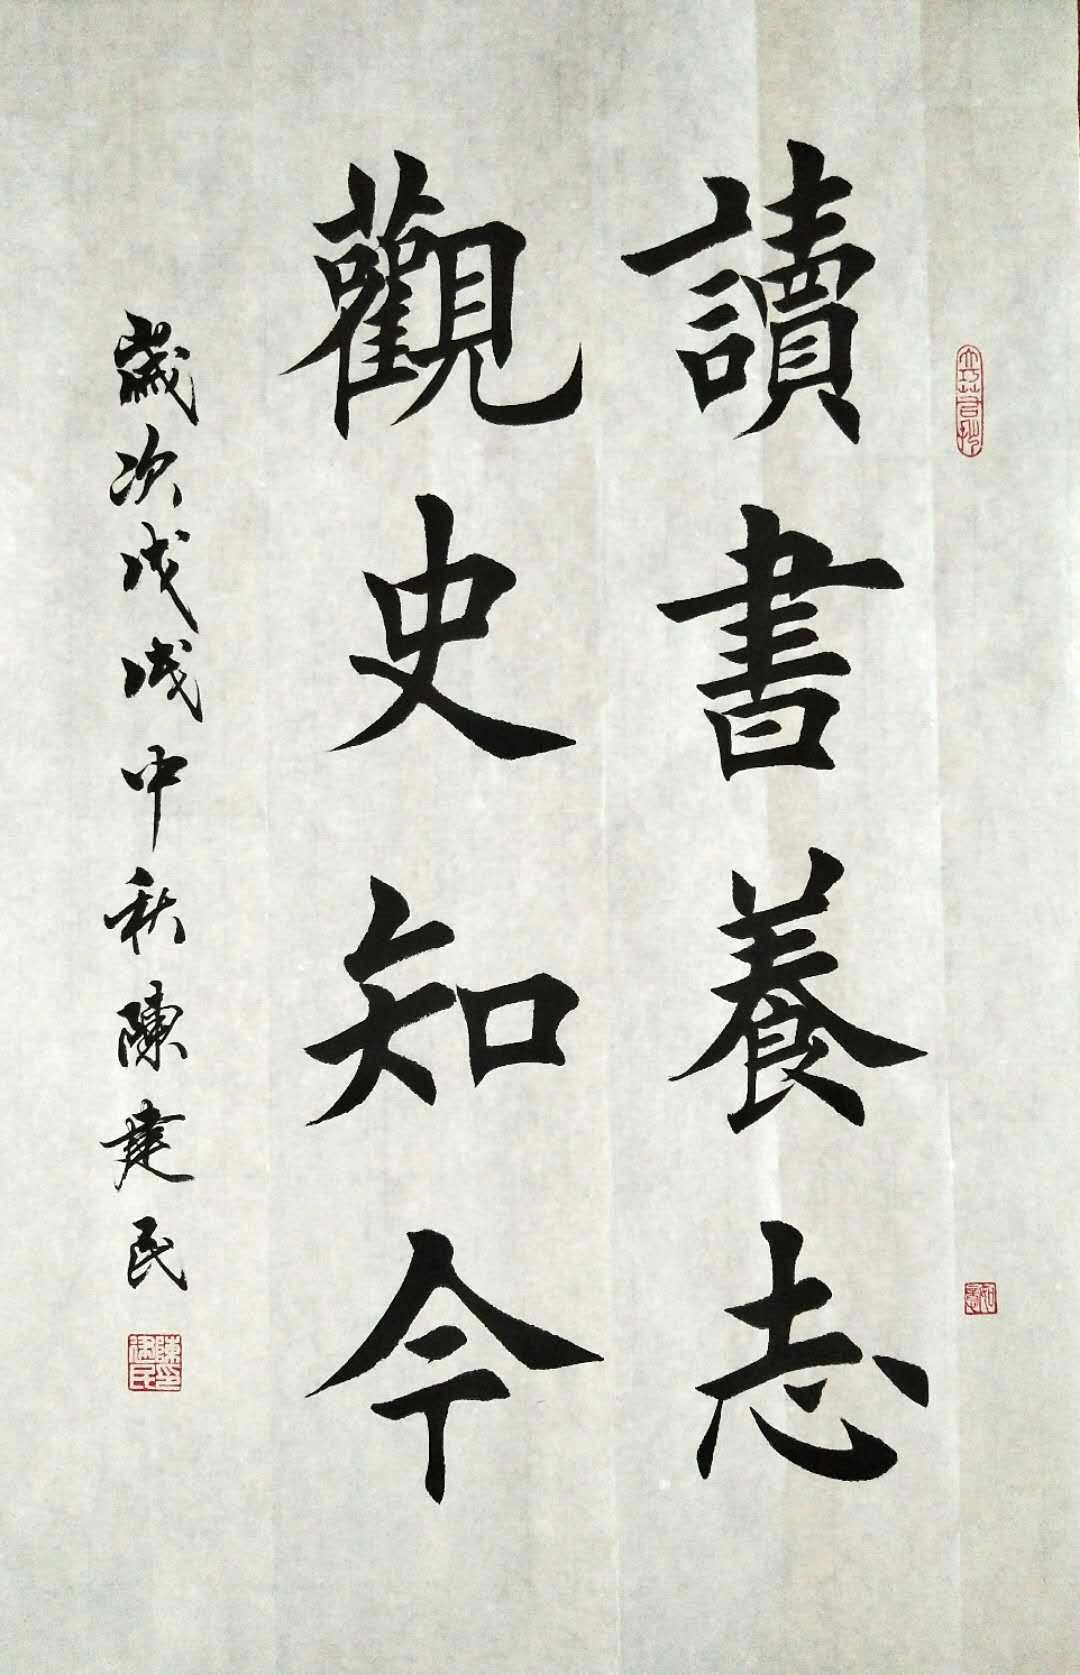 讀書養志
觀史知今
歲次戊戌中秋陳建民
陳建民印